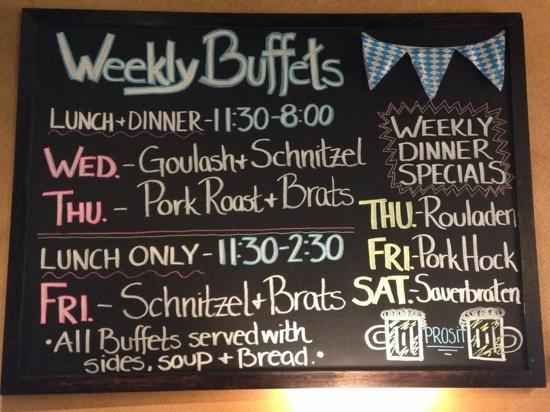 Weekly Buffets
LUNCH + DINNER - 11:30-8:00
WED. - Goulash + Schnitzel
THU. - Pork Roast + Brats
LUNCH ONLY - 11:30-2:30
FRI. - Schnitzel + Brats
• All Buffets served with
sides, soup + Bread. •
WEEKLY
DINNER
SPECIALS
THU. - Rouladen
FRI. Pork Hock
SAT. - Sauerbraten
PROSIT